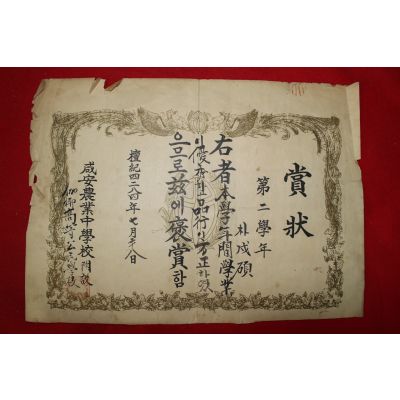 賞狀
第二學年
朴成碩
右者本學年間學業
優 品行 方正
음로玆에褒賞함
檀紀四二八四年七月 八日
咸安農業中學校附設
高等公民學校